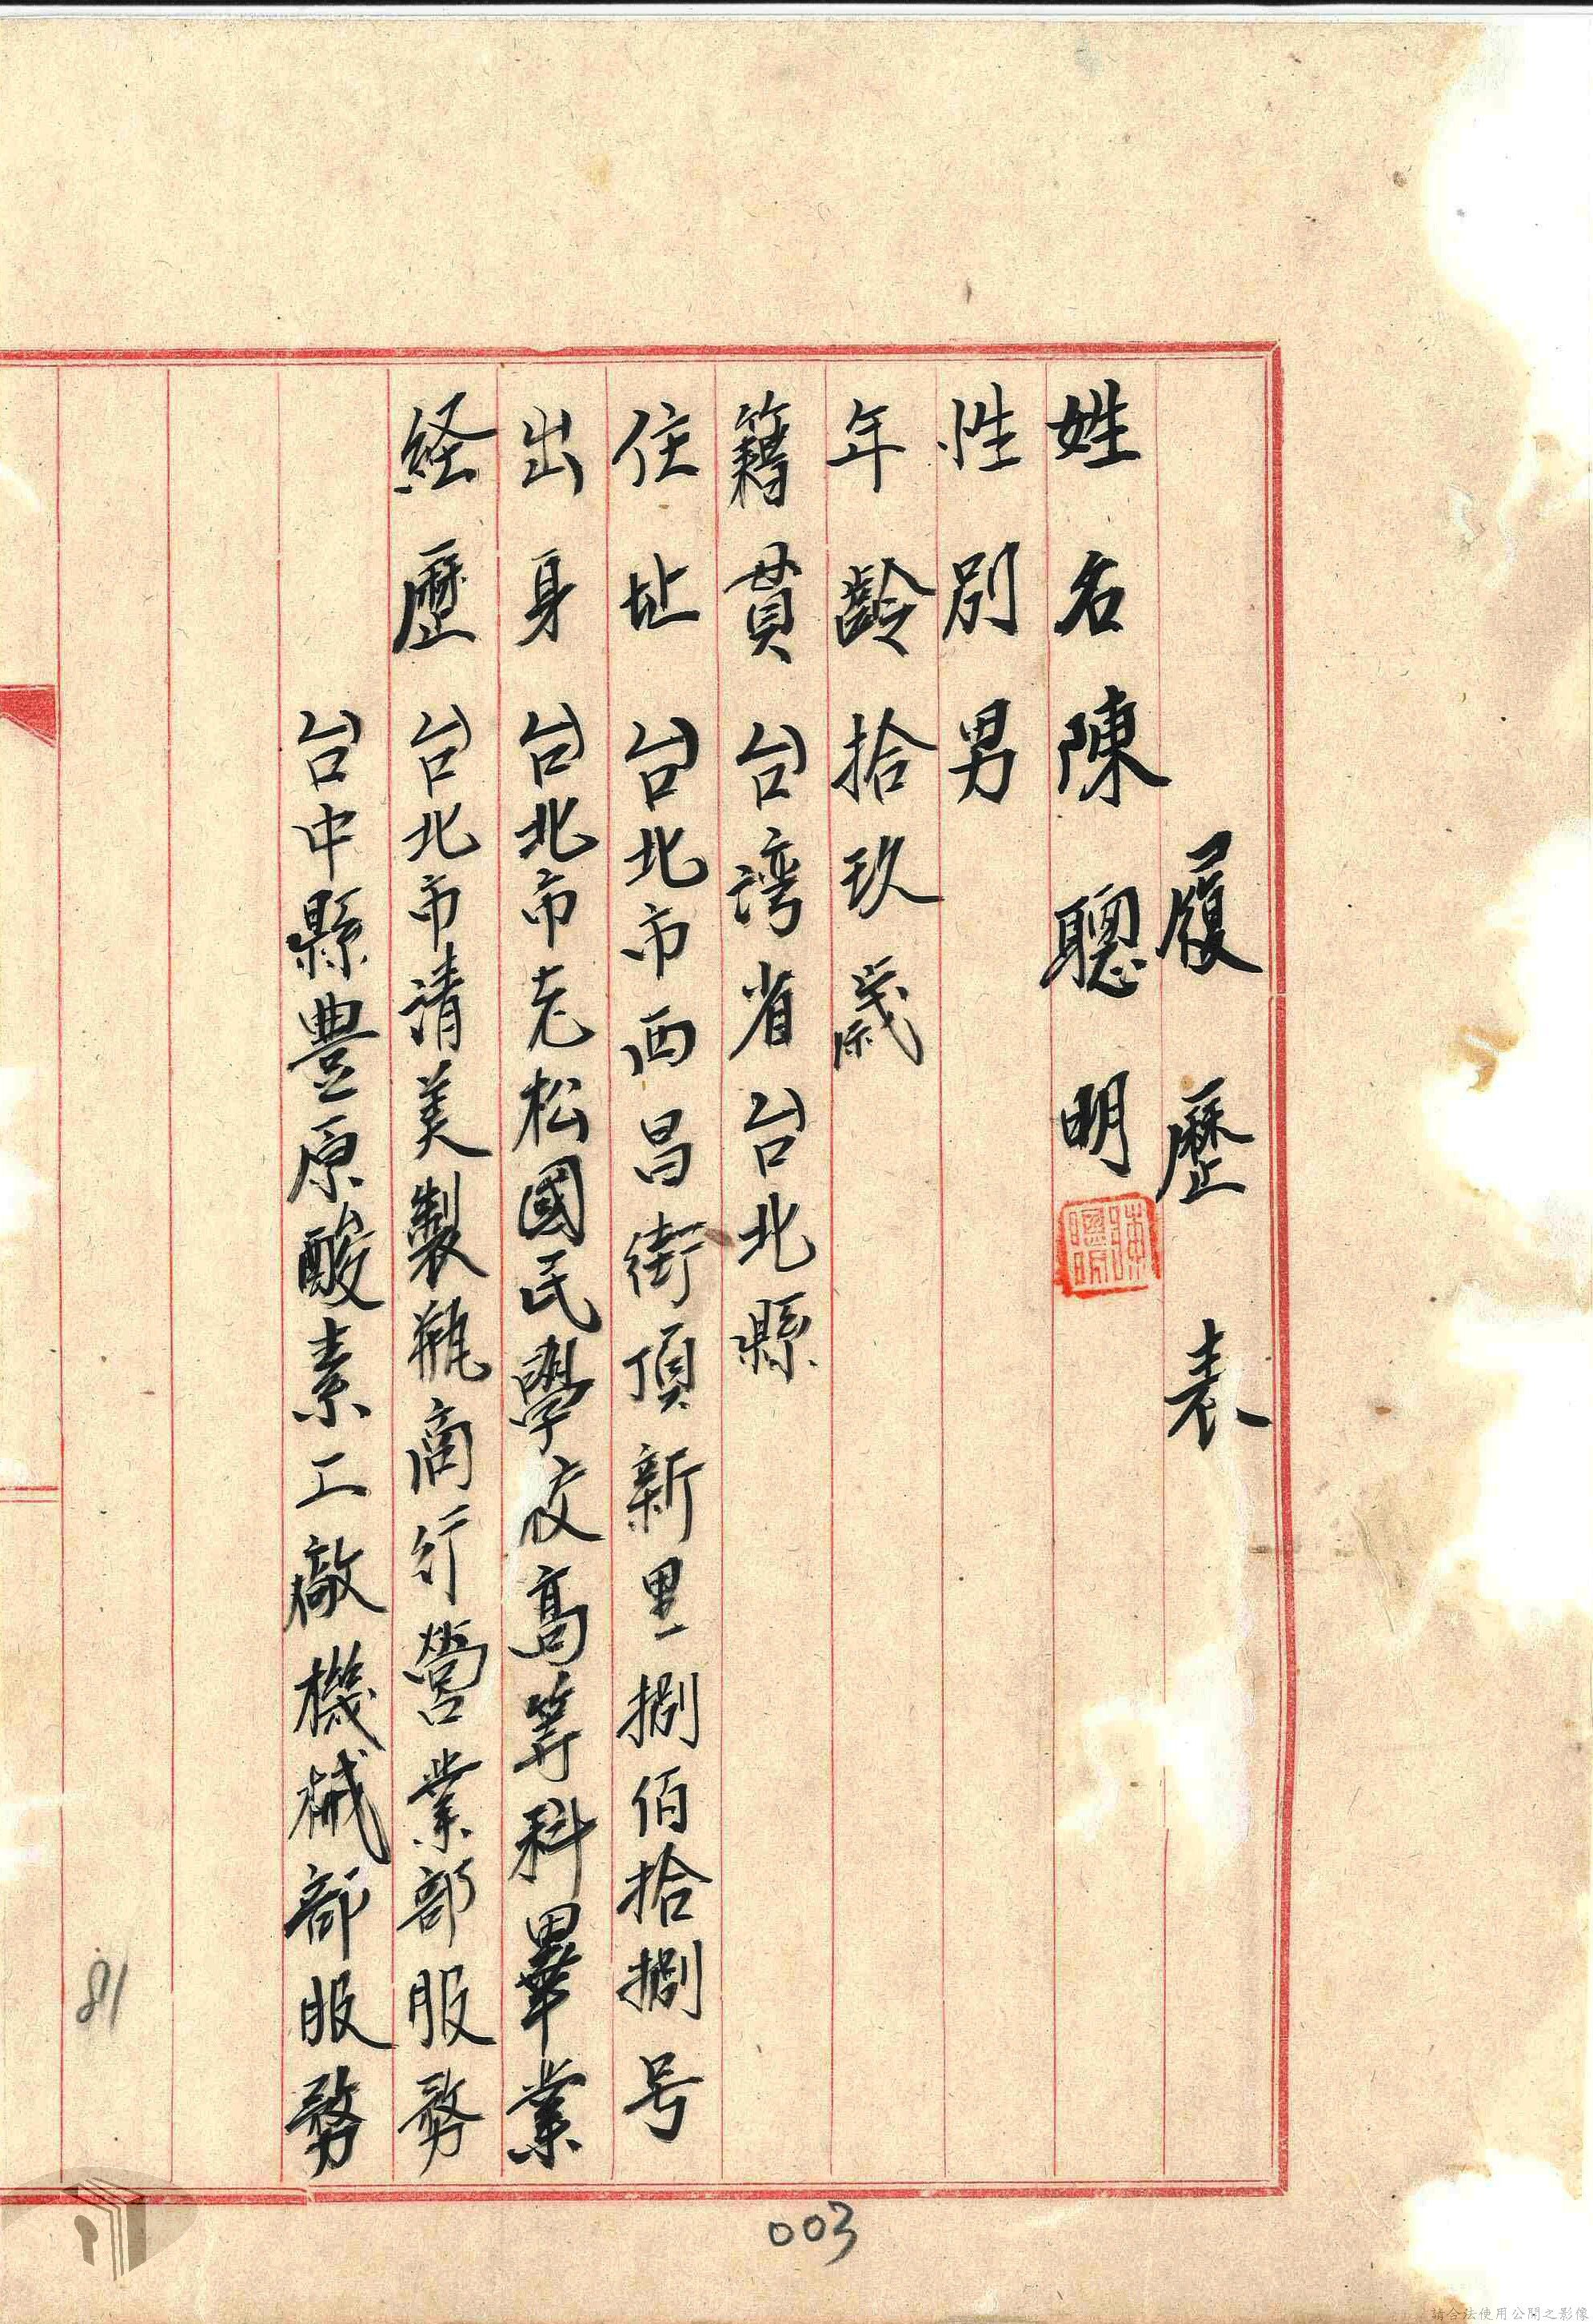 履歷表
姓名 陳聰明
陳聰明
性別 男
年齡 拾玖歲
籍貫 台湾省台北縣
住址 台北市西昌街頂新里捌佰拾捌号
出身 台北市老松國民學校高等科畢業
経歷 台北市清美製瓶商行營業部服務
台中縣豊原酸素工廠機械部服務
81
003
請合法使用公開之影像